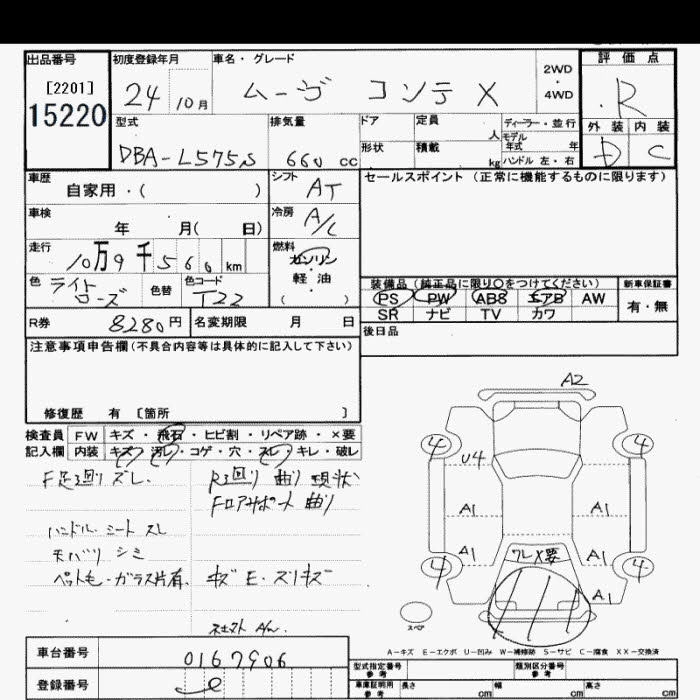 出品番号 初度登録年月 車名・グレード 2WD ・ 4WD 評価点
[2201]
15220
24 10月 ムーヴ コンテ X R
型式 排気量 ドア 定員 人 ディーラー・並行
モデル年式 年 外装 内装
DBA-L575S 660 cc 形状 積載 kg ハンドル 左・右 D C
車歴 自家用・( ) シフト AT セールスポイント(正常に機能するものに限ります)
車検 年 月( 日) 冷房 A/C
走行 10万9千566km 燃料 ガソリン・軽油・( )
色 ライトローズ 色替 色コード T22
装備品(純正品に限り○をつけてください) 新車保証書
PS PW ABS エアB AW 有・無
SR ナビ TV カワ
R券 8280円 名変期限 月 日 後日品
注意事項申告欄(不具合内容等は具体的に記入して下さい)
修復歴 有 〔箇所 〕
検査員記入欄 FW キズ・飛石・ヒビ割・リペア跡・×要
内装 キズ・汚レ・コゲ・穴・スレ・キレ・破レ
F足廻りズレ、 R廻り曲り現状
Fロアサポート曲り
ハンドル、シートスレ
天バリシミ
ペットも・ガラス片有、キズE・スリキズ
A2
4 4
U4
A1 A1
A1 ワレX要 A1
4 4
A1
スペア
A-キズ E-エクボ U-凹み W-補修跡 S-サビ C-腐食 XX-交換済
車台番号 0167906
登録番号 e
型式指定番号 参考 類別区分番号 参考
車庫証明用 参考 長さ cm 幅 cm 高さ cm